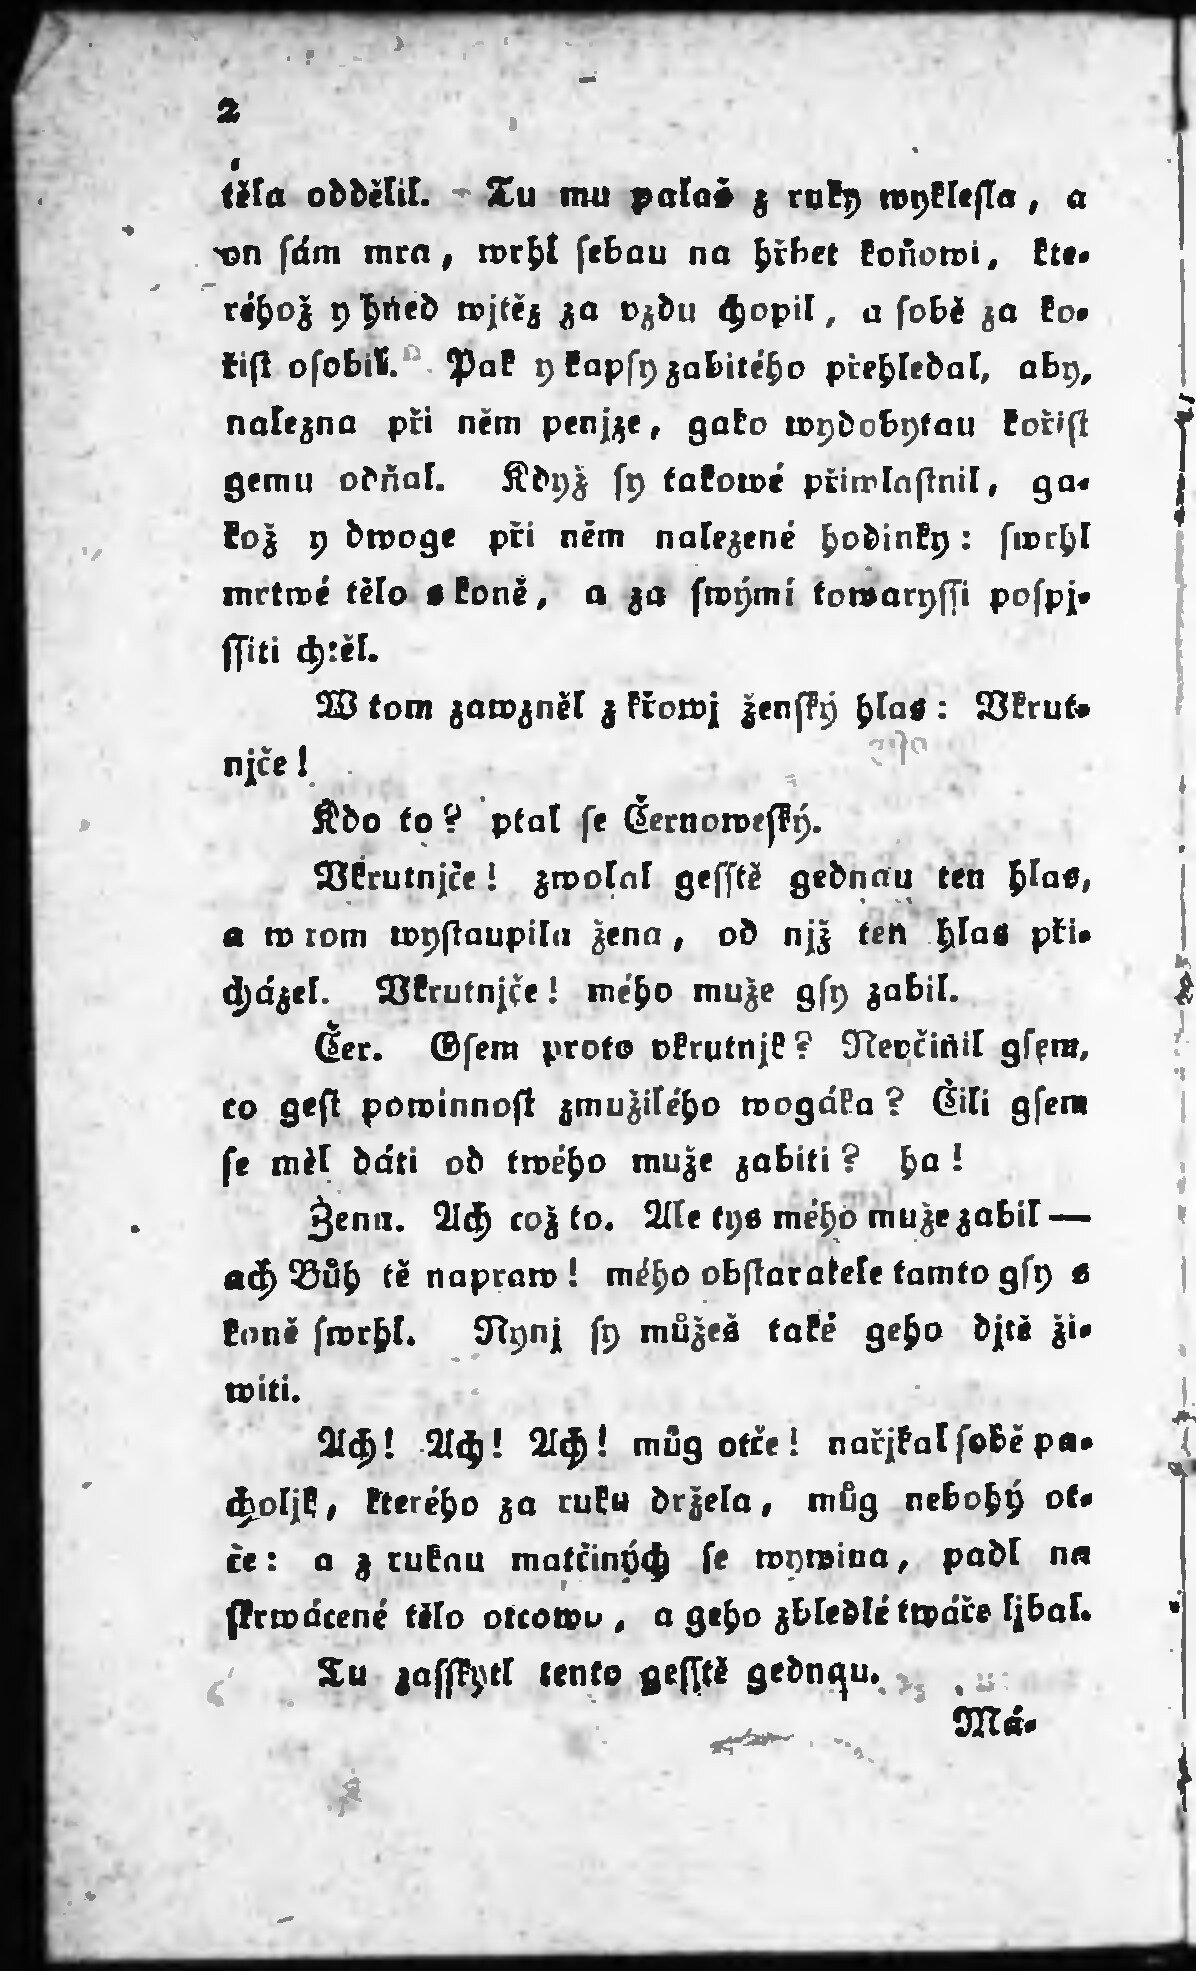 2
těla oddělil. Tu mu palaš z ruky wyklesla, a
on sám mra, wrhl sebau na hřbet koňowi, kte-
réhož y hned wjtěz za vzdu chopil, a sobě za ko-
řist osobil. Pak y kapsy zabitého přehledal, aby,
nalezna při něm penjze, gako wydobytau kořist
gemu odňal. Když sy takowé přiwlastnil, ga-
kož y dwoge při něm nalezené hodinky: swrhl
mrtwé tělo s koně, a za swými towaryšsi pospj-
ssiti chtěl.
W tom zawzněl z křowj ženský hlas: Vkrut-
njče!
Kdo to? ptal se Černoweský.
Vkrutnjče! zwolal gesstě gednau ten hlas,
a w tom wystaupila žena, od njž ten hlas při-
cházel. Vkrutnjče! mého muže gsy zabil.
Čer. Gsem proto vkrutnjk? Nevčinil gsem,
co gest powinnost zmužilého wogáka? Čili gsem
se měl dáti od twého muže zabiti? ha!
Žena. Ach což to. Ale tys mého muže zabil —
ach Bůh tě napraw! mého obstaratele tamto gsy s
koně swrhl. Nynj sy můžeš také geho djtě ži-
witi.
Ach! Ach! Ach! můg otče! nařjkal sobě pa-
choljk, kterého za ruku držela, můg nebohý ot-
če: a z rukau matčiných se wymina, padl na
skrwácené tělo otcowo, a geho zbledlé twáře ljbal.
Tu zasskytl tento gesstě gednau.
Má-